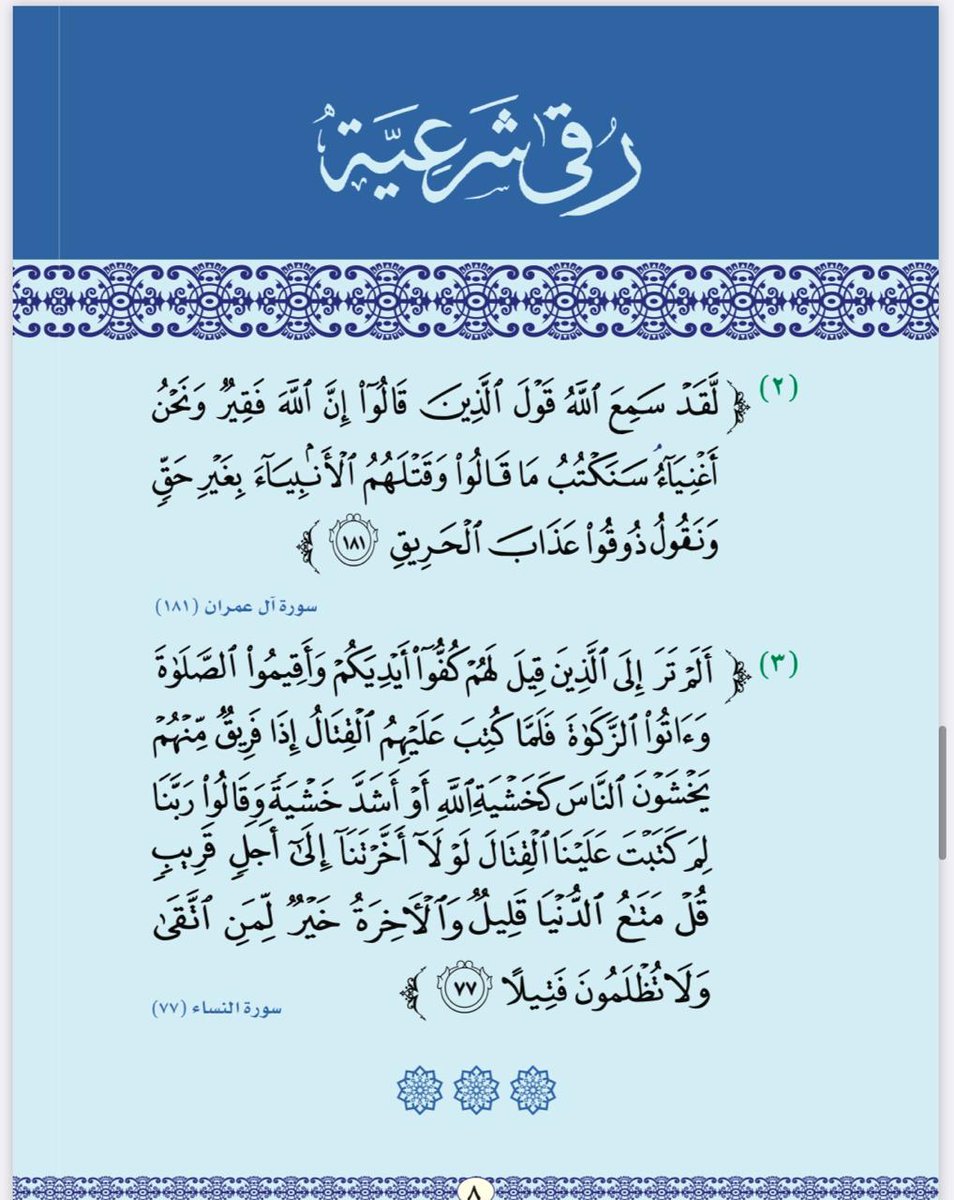 رُقىً شَرْعِيَّةٌ
(٢) ﴿ لَّقَدۡ سَمِعَ ٱللَّهُ قَوۡلَ ٱلَّذِينَ قَالُوٓاْ إِنَّ ٱللَّهَ فَقِيرٞ وَنَحۡنُ
أَغۡنِيَآءُۘ سَنَكۡتُبُ مَا قَالُواْ وَقَتۡلَهُمُ ٱلۡأَنۢبِيَآءَ بِغَيۡرِ حَقّٖ
وَنَقُولُ ذُوقُواْ عَذَابَ ٱلۡحَرِيقِ ١٨١ ﴾
سورة آل عمران (١٨١)
(٣) ﴿ أَلَمۡ تَرَ إِلَى ٱلَّذِينَ قِيلَ لَهُمۡ كُفُّوٓاْ أَيۡدِيَكُمۡ وَأَقِيمُواْ ٱلصَّلَوٰةَ
وَءَاتُواْ ٱلزَّكَوٰةَ فَلَمَّا كُتِبَ عَلَيۡهِمُ ٱلۡقِتَالُ إِذَا فَرِيقٞ مِّنۡهُمۡ
يَخۡشَوۡنَ ٱلنَّاسَ كَخَشۡيَةِ ٱللَّهِ أَوۡ أَشَدَّ خَشۡيَةٗۚ وَقَالُواْ رَبَّنَا
لِمَ كَتَبۡتَ عَلَيۡنَا ٱلۡقِتَالَ لَوۡلَآ أَخَّرۡتَنَآ إِلَىٰٓ أَجَلٖ قَرِيبٖۗ
قُلۡ مَتَٰعُ ٱلدُّنۡيَا قَلِيلٞ وَٱلۡأٓخِرَةُ خَيۡرٞ لِّمَنِ ٱتَّقَىٰ
وَلَا تُظۡلَمُونَ فَتِيلًا ٧٧ ﴾
سورة النساء (٧٧)
٨